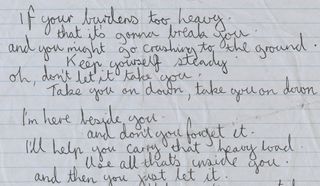 If your burdens too heavy.
that it's gonna break you.
and you might go crashing to the ground.
Keep yourself steady
oh, don't let it take you.
Take you on down, take you on down
I'm here beside you
and don't you forget it.
I'll help you carry that heavy load.
Use all thats inside you.
and then you just let it.